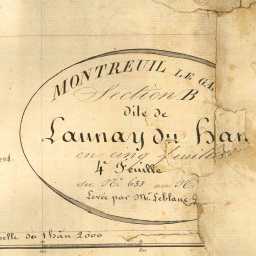 MONTREUIL LE GA
Section B
dite de
Launay du Han
en cinq feuilles
4e Feuille
du No 633 au No
Levée par Mr. Leblanc
elle de 1 h à n 2000